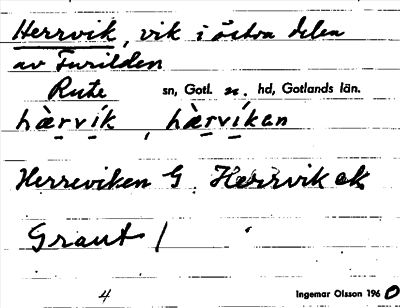 Herrvik, vik i östra delen
av Furilden
Rute sn, Gotl. n. hd, Gotlands län.
hàrvík, hàrvíken
Herreviken G Herrvik ek
Graut /
4 Ingemar Olsson 1960